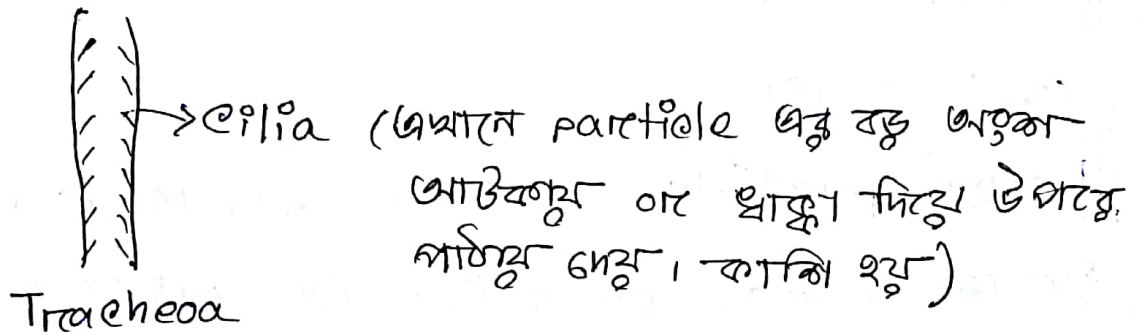 Cilia (এখানে particle এর বড় অংশ
আটকায় তা ধাক্কা দিয়ে উপরে
পাঠিয়ে দেয়। কাশি হয়)
Tracheoa